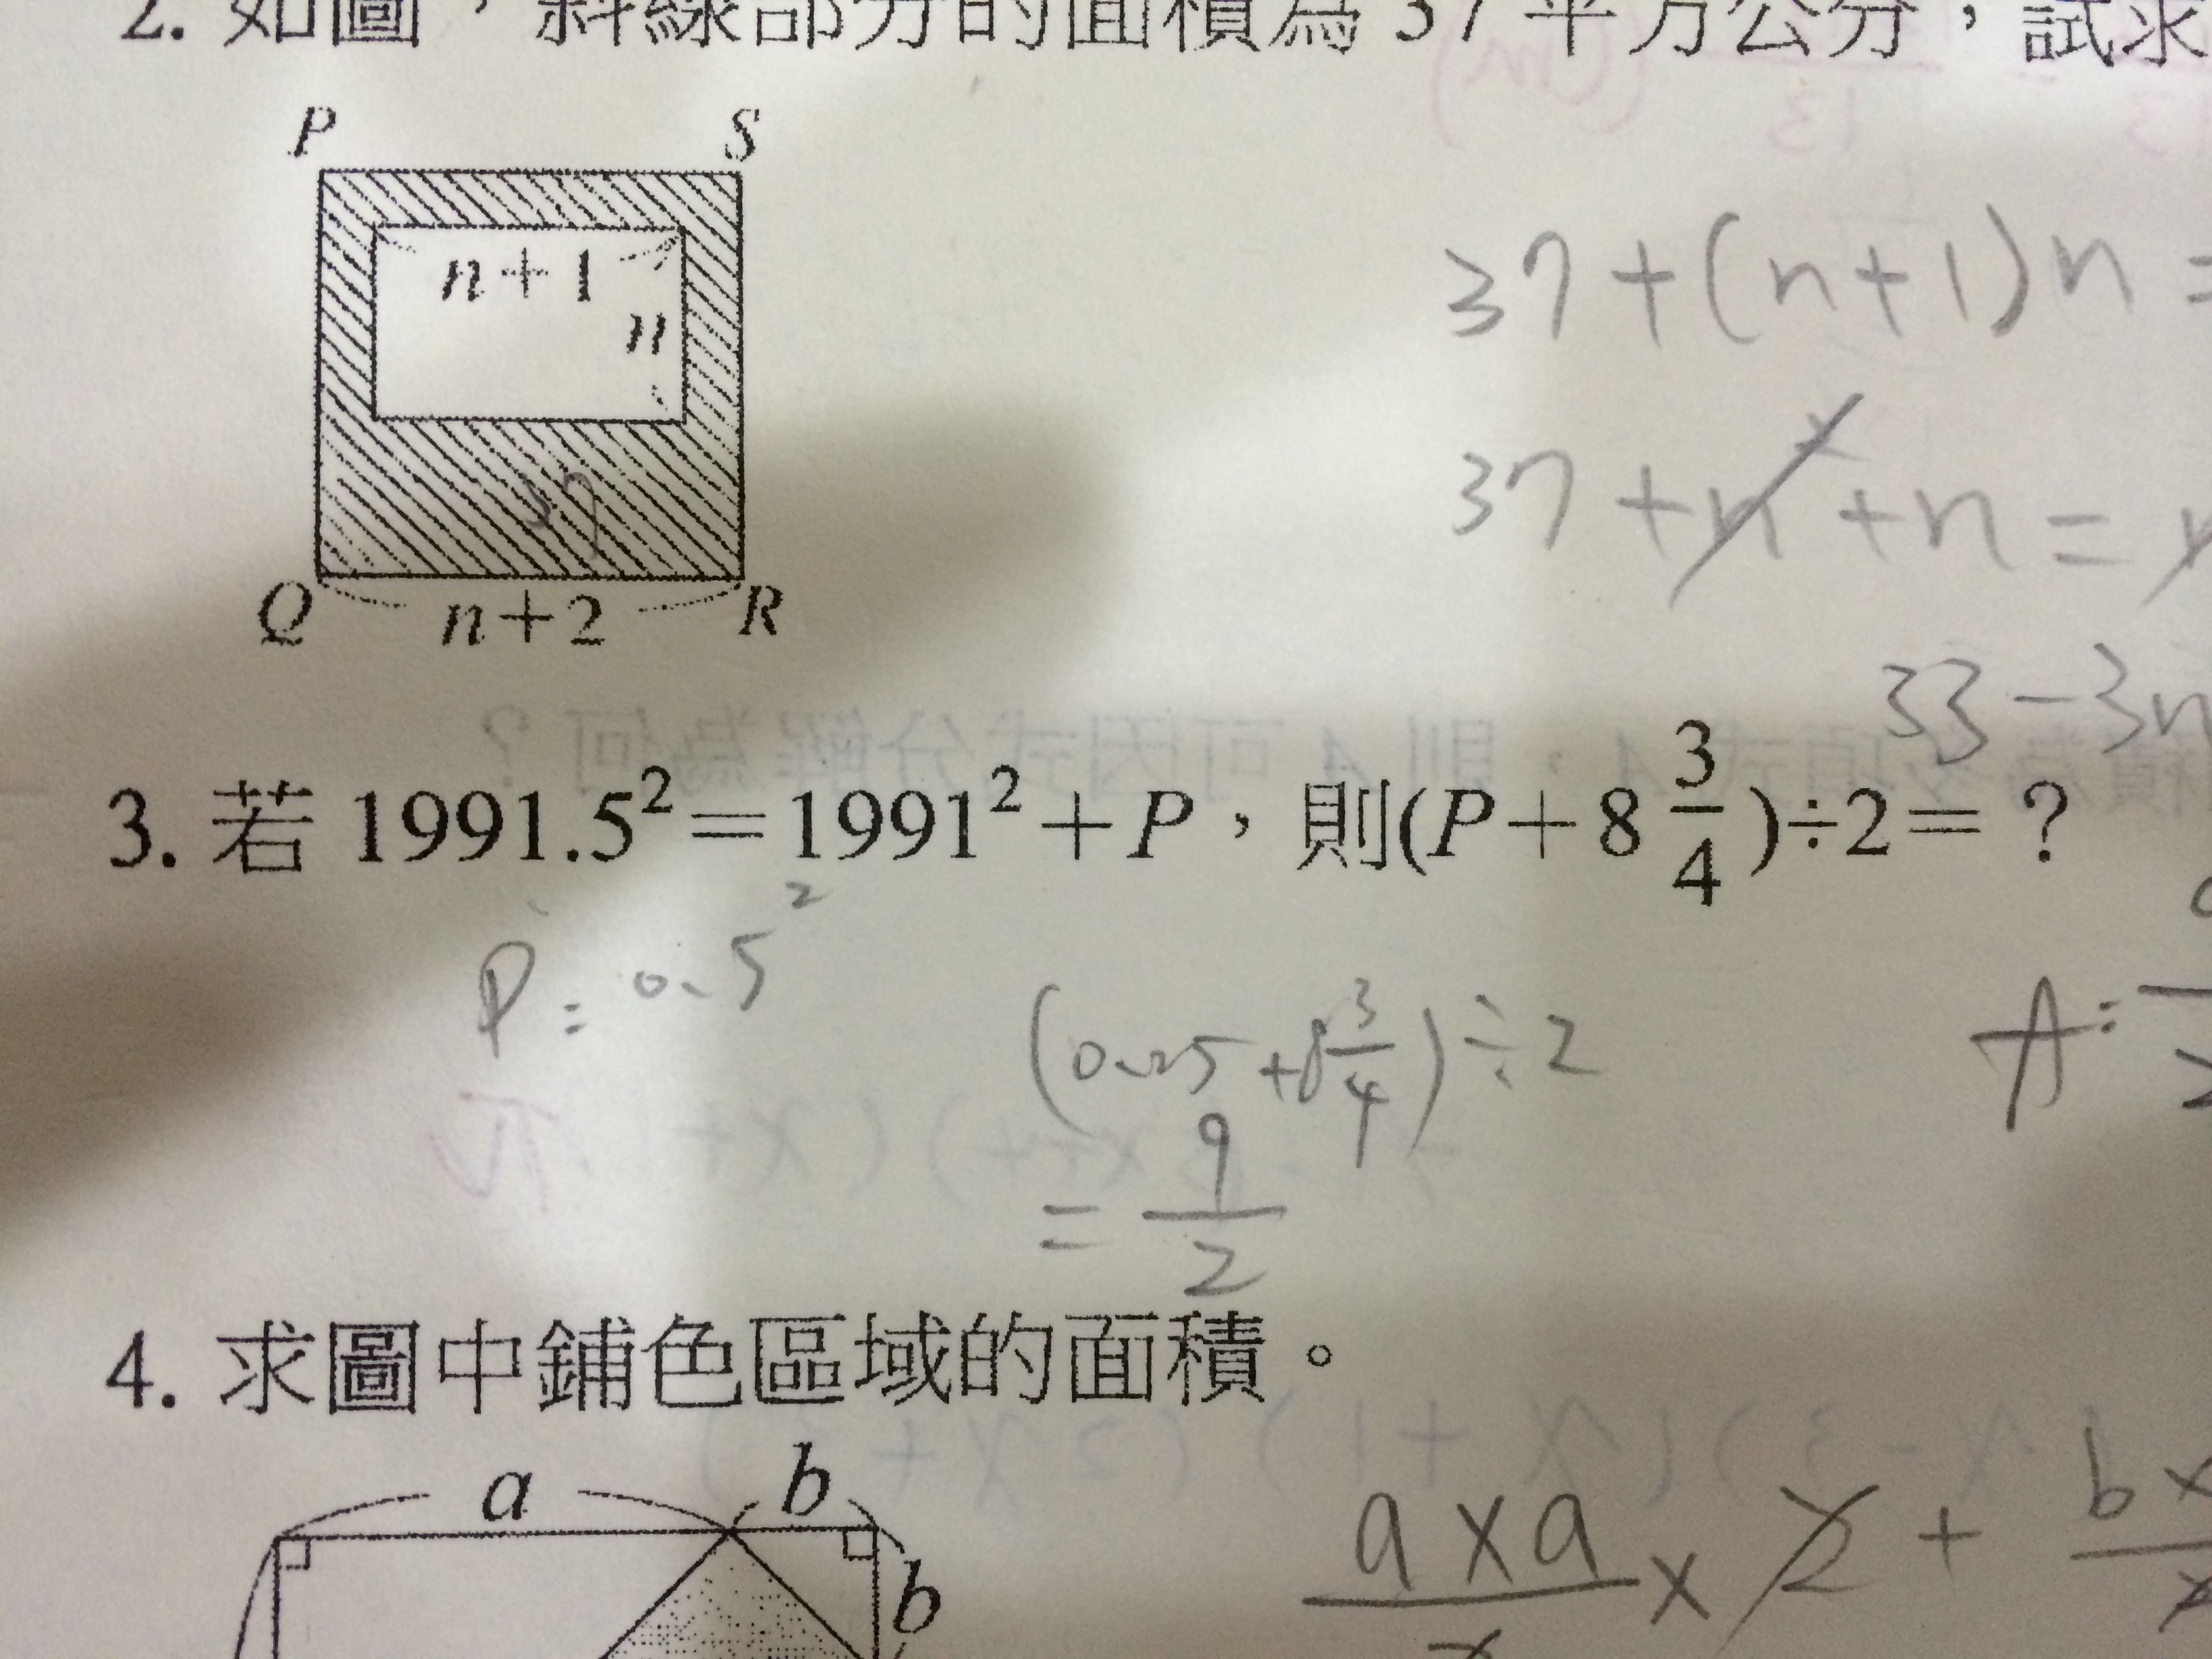 2. 如圖，斜線部分的面積為 37 平方公分，試求
P S
n+1
n
37
Q n+2 R
37+(n+1)n=
37+n²+n=
33-3n
3. 若 1991.5²=1991²+P，則(P+8 3/4)÷2=？
P=0.5²
(0.25+8 3/4)÷2
=9/2
A=
4. 求圖中鋪色區域的面積。
a b
b
a×a
×2+
b×